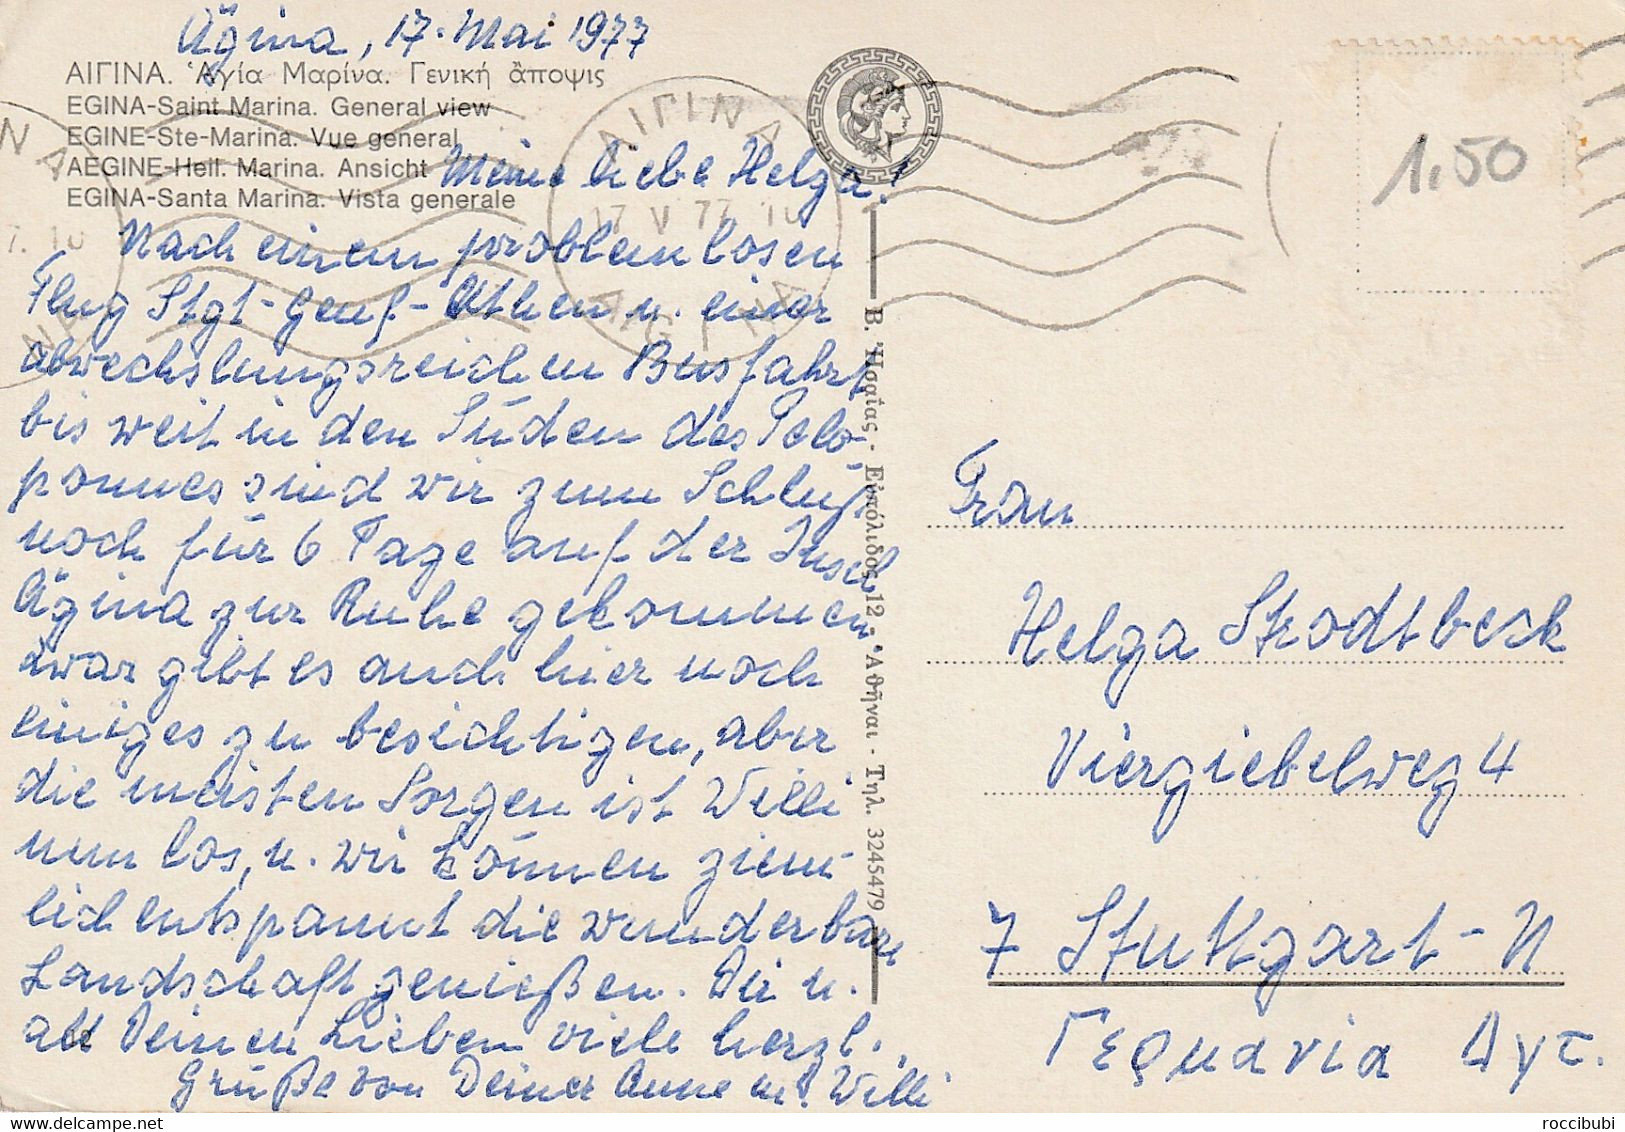 Ägina, 17. Mai 1977
ΑΙΓΙΝΑ. Ἁγία Μαρίνα. Γενική ἄποψις
EGINA-Saint Marina. General view
EGINE-Ste-Marina. Vue general
AEGINE-Heil. Marina. Ansicht
EGINA-Santa Marina. Vista generale
ΑΙΓΙΝΑ
17 V 77 10
1,50
Meine liebe Helga!
Nach einem problemlosen
Flug Stgt-Genf-Athen u. einer
abwechslungsreichen Busfahrt
bis weit in den Süden des Pelo-
ponnes sind wir zum Schluß
noch für 6 Tage auf der Insel
Ägina zur Ruhe gekommen
zwar gibt es auch hier noch
einiges zu besichtigen, aber
die meisten Sorgen ist Willi
nun los, u. wir können ziem-
lich entspannt die wunderbare
Landschaft genießen. Dir u.
all Deinen Lieben viele herzl.
Grüße von Deiner Anne u. Willi
Β. Ἡσαΐας - Εὐπόλιδος 12 - Ἀθῆναι - Τηλ. 3245479
Frau
Helga Strodtbeck
Viergiebelweg 4
7 Stuttgart-N
Γερμανία Δυτ.
roccibubi